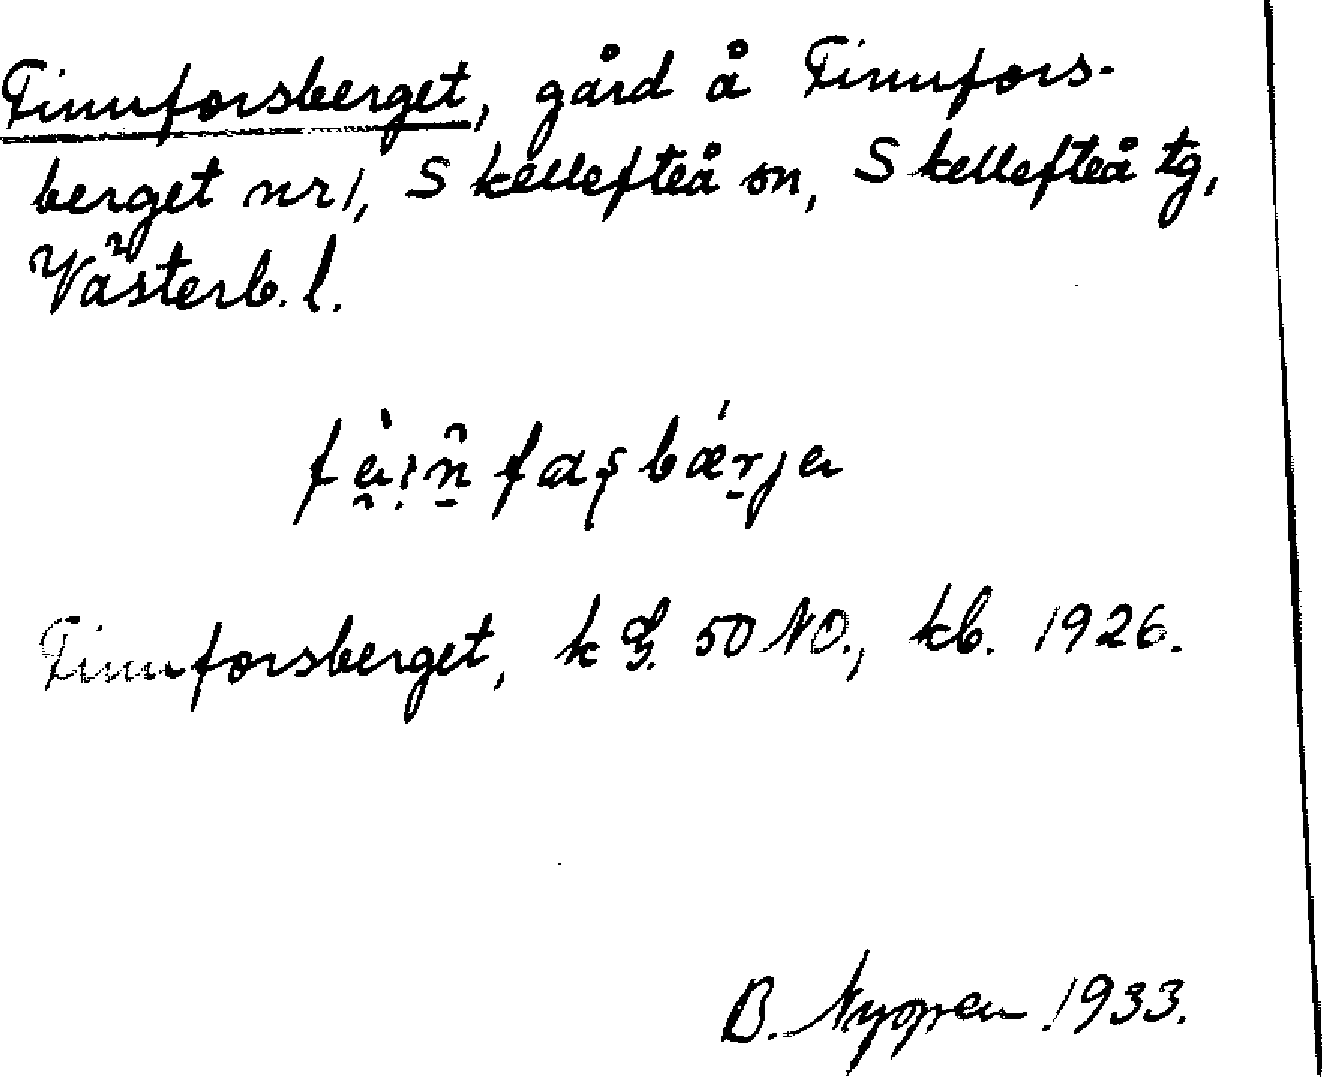 Finnforsberget, gård å Finnfors-
berget nr 1, Skellefteå sn, Skellefteå tg,
Västerb. l.
Finnforsberget, k 50 NO., kb. 1926.
B. 1933.